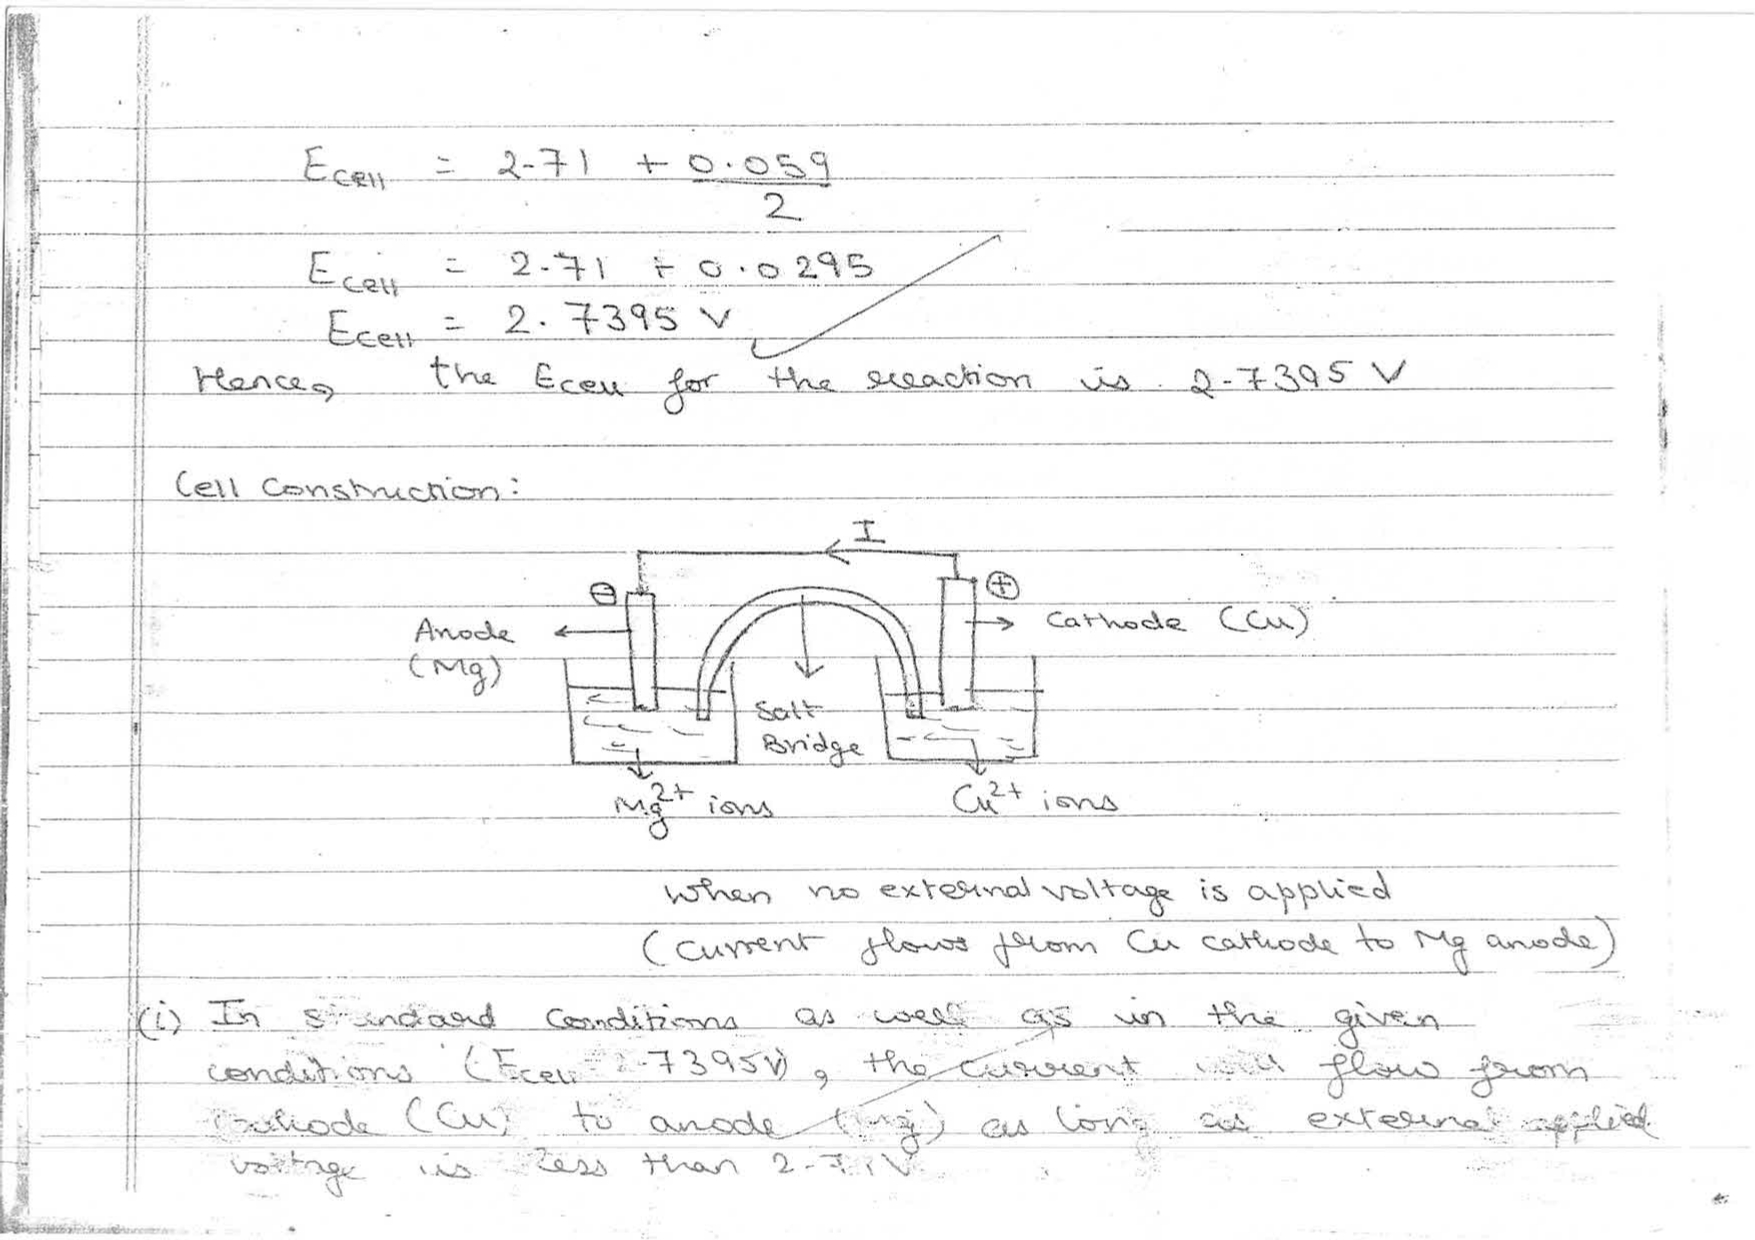 Ecell = 2.71 + 0.059
2
Ecell = 2.71 + 0.0295
Ecell = 2.7395 V
Hence, the Ecell for the reaction is 2.7395 V
Cell Construction:
I
⊖ ⊕
Anode Cathode (Cu)
(Mg)
Salt
Bridge
Mg2+ ions Cu2+ ions
When no external voltage is applied
(current flows from Cu cathode to Mg anode)
(i) In standard conditions as well as in the given
conditions (Ecell 2.7395V), the current will flow from
cathode (Cu) to anode (Mg) as long as external applied
voltage is less than 2.71V